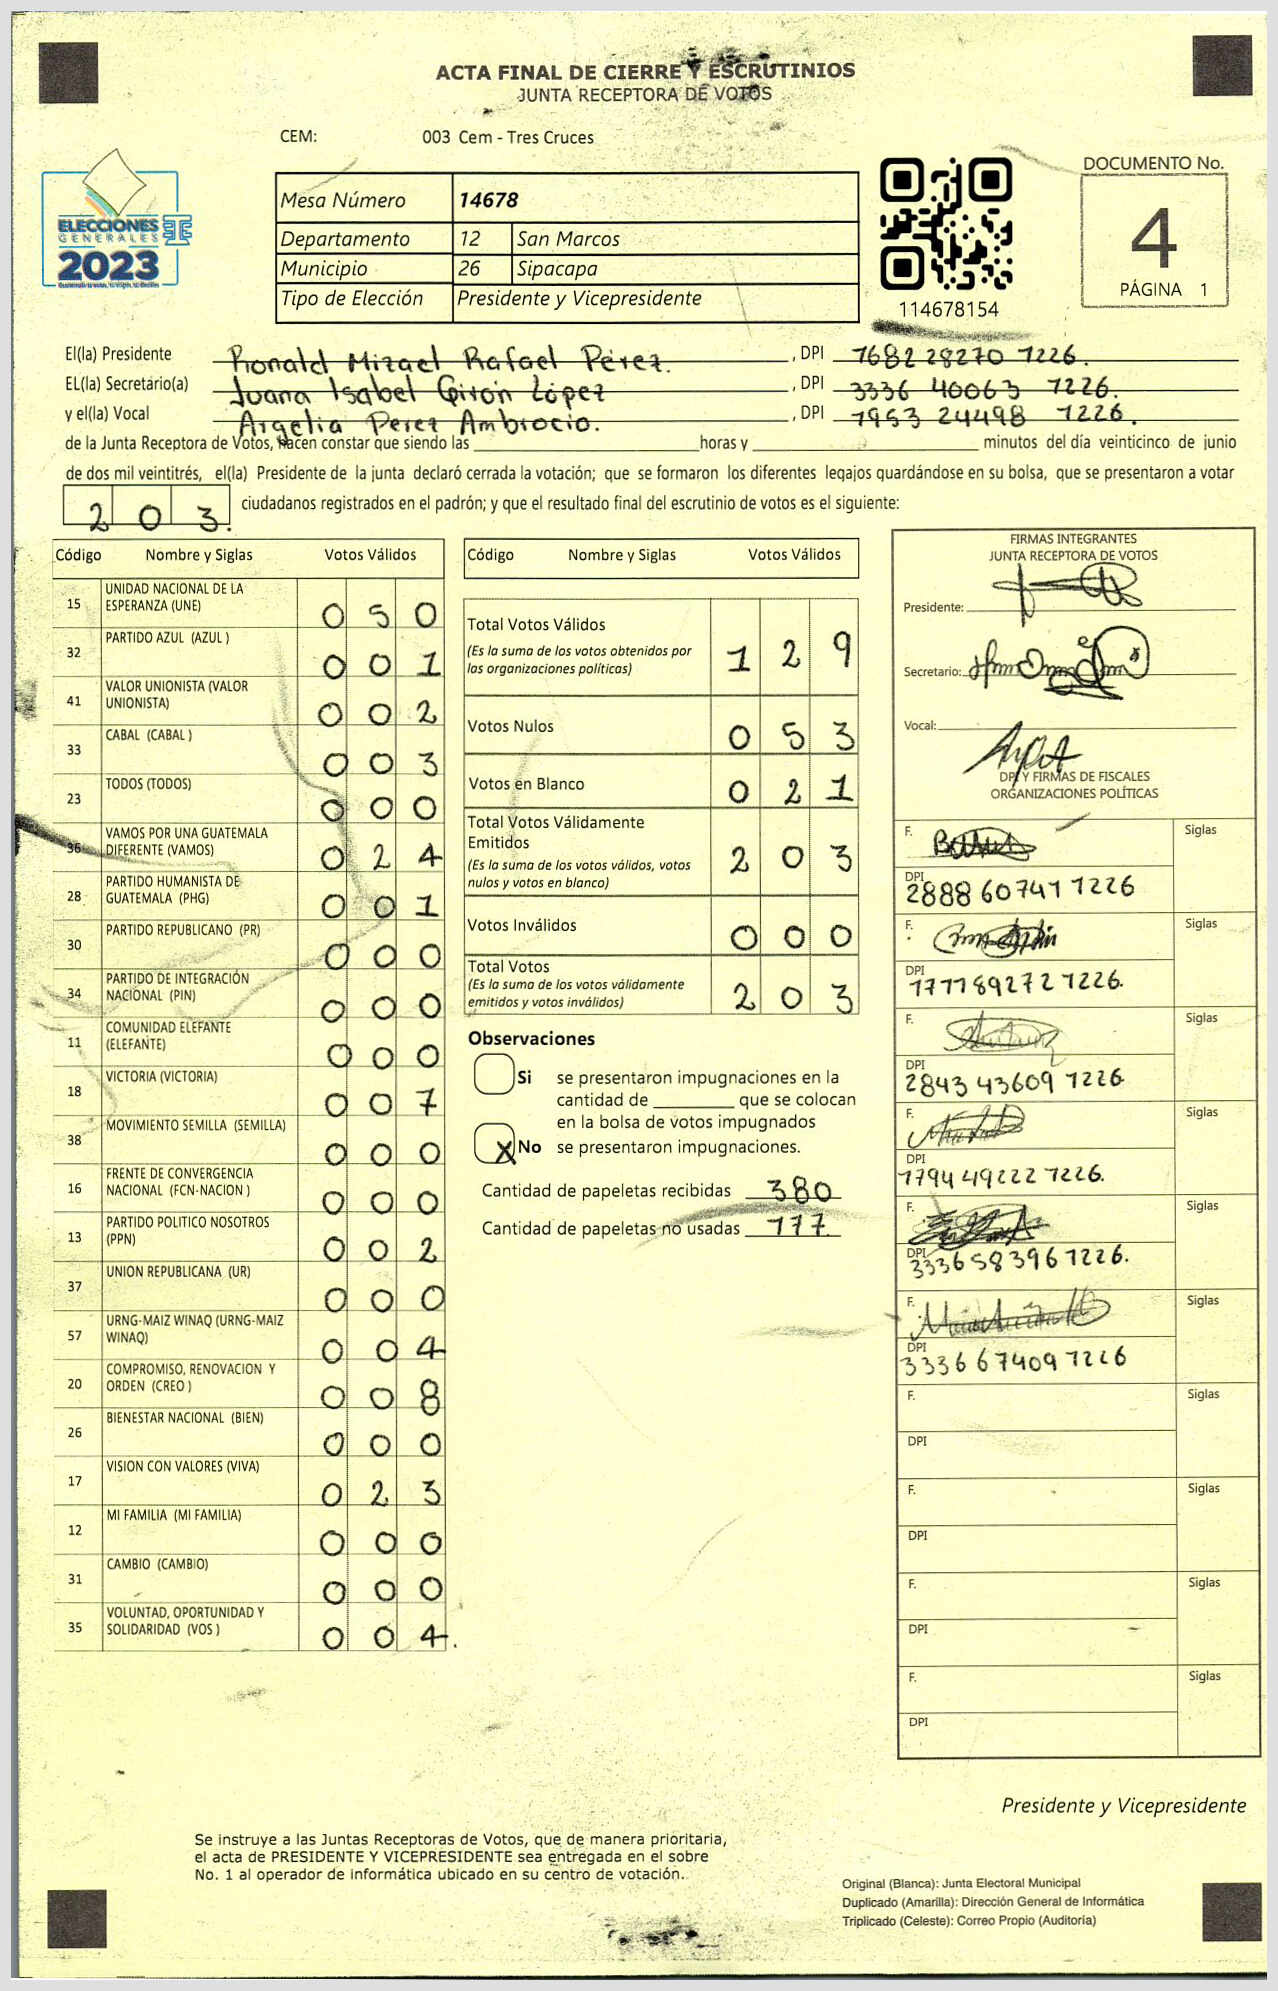 ACTA FINAL DE CIERRE Y ESCRUTINIOS
JUNTA RECEPTORA DE VOTOS
CEM: 003 Cem - Tres Cruces
DOCUMENTO No.
4
PÁGINA 1
ELECCIONES
GENERALES
2023
Mesa Número 14678
Departamento 12 San Marcos
Municipio 26 Sipacapa
Tipo de Elección Presidente y Vicepresidente
114678154
El(la) Presidente Ronald Mizael Rafael Pérez. , DPI 1682 28270 1226.
EL(la) Secretario(a) Juana Isabel Girón López , DPI 3336 40063 1226.
y el(la) Vocal Argelia Perez Ambrocio. , DPI 1953 24498 1226.
de la Junta Receptora de Votos, hacen constar que siendo las horas y minutos del día veinticinco de junio
de dos mil veintitrés, el(la) Presidente de la junta declaró cerrada la votación; que se formaron los diferentes legajos quardándose en su bolsa, que se presentaron a votar
203. ciudadanos registrados en el padrón; y que el resultado final del escrutinio de votos es el siguiente:
Código Nombre y Siglas Votos Válidos
15 UNIDAD NACIONAL DE LA ESPERANZA (UNE) 0 5 0
32 PARTIDO AZUL (AZUL ) 0 0 1
41 VALOR UNIONISTA (VALOR UNIONISTA) 0 0 2
33 CABAL (CABAL ) 0 0 3
23 TODOS (TODOS) 0 0 0
36 VAMOS POR UNA GUATEMALA DIFERENTE (VAMOS) 0 2 4
28 PARTIDO HUMANISTA DE GUATEMALA (PHG) 0 0 1
30 PARTIDO REPUBLICANO (PR) 0 0 0
34 PARTIDO DE INTEGRACIÓN NACIONAL (PIN) 0 0 0
11 COMUNIDAD ELEFANTE (ELEFANTE) 0 0 0
18 VICTORIA (VICTORIA) 0 0 7
38 MOVIMIENTO SEMILLA (SEMILLA) 0 0 0
16 FRENTE DE CONVERGENCIA NACIONAL (FCN-NACION ) 0 0 0
13 PARTIDO POLITICO NOSOTROS (PPN) 0 0 2
37 UNION REPUBLICANA (UR) 0 0 0
57 URNG-MAIZ WINAQ (URNG-MAIZ WINAQ) 0 0 4
20 COMPROMISO, RENOVACION Y ORDEN (CREO ) 0 0 8
26 BIENESTAR NACIONAL (BIEN) 0 0 0
17 VISION CON VALORES (VIVA) 0 2 3
12 MI FAMILIA (MI FAMILIA) 0 0 0
31 CAMBIO (CAMBIO) 0 0 0
35 VOLUNTAD, OPORTUNIDAD Y SOLIDARIDAD (VOS ) 0 0 4.
Código Nombre y Siglas Votos Válidos
Total Votos Válidos 1 2 9
(Es la suma de los votos obtenidos por
las organizaciones políticas)
Votos Nulos 0 5 3
Votos en Blanco 0 2 1
Total Votos Válidamente
Emitidos 2 0 3
(Es la suma de los votos válidos, votos
nulos y votos en blanco)
Votos Inválidos 0 0 0
Total Votos 2 0 3
(Es la suma de los votos válidamente
emitidos y votos inválidos)
Observaciones
Si se presentaron impugnaciones en la
cantidad de que se colocan
en la bolsa de votos impugnados
X No se presentaron impugnaciones.
Cantidad de papeletas recibidas 380
Cantidad de papeletas no usadas 177.
FIRMAS INTEGRANTES
JUNTA RECEPTORA DE VOTOS
Presidente:
Secretario:
Vocal:
DPI Y FIRMAS DE FISCALES
ORGANIZACIONES POLÍTICAS
F. Siglas
DPI 2888 60741 1226
F. Siglas
DPI 1777 89272 1226.
F. Siglas
DPI 2843 43609 1226
F. Siglas
DPI 1794 49222 1226.
F. Siglas
DPI 3336 58396 1226.
F. Siglas
DPI 3336 67409 1226
F. Siglas
DPI
F. Siglas
DPI
F. Siglas
DPI
F. Siglas
DPI
Presidente y Vicepresidente
Se instruye a las Juntas Receptoras de Votos, que de manera prioritaria,
el acta de PRESIDENTE Y VICEPRESIDENTE sea entregada en el sobre
No. 1 al operador de informática ubicado en su centro de votación.
Original (Blanca): Junta Electoral Municipal
Duplicado (Amarilla): Dirección General de Informática
Triplicado (Celeste): Correo Propio (Auditoría)